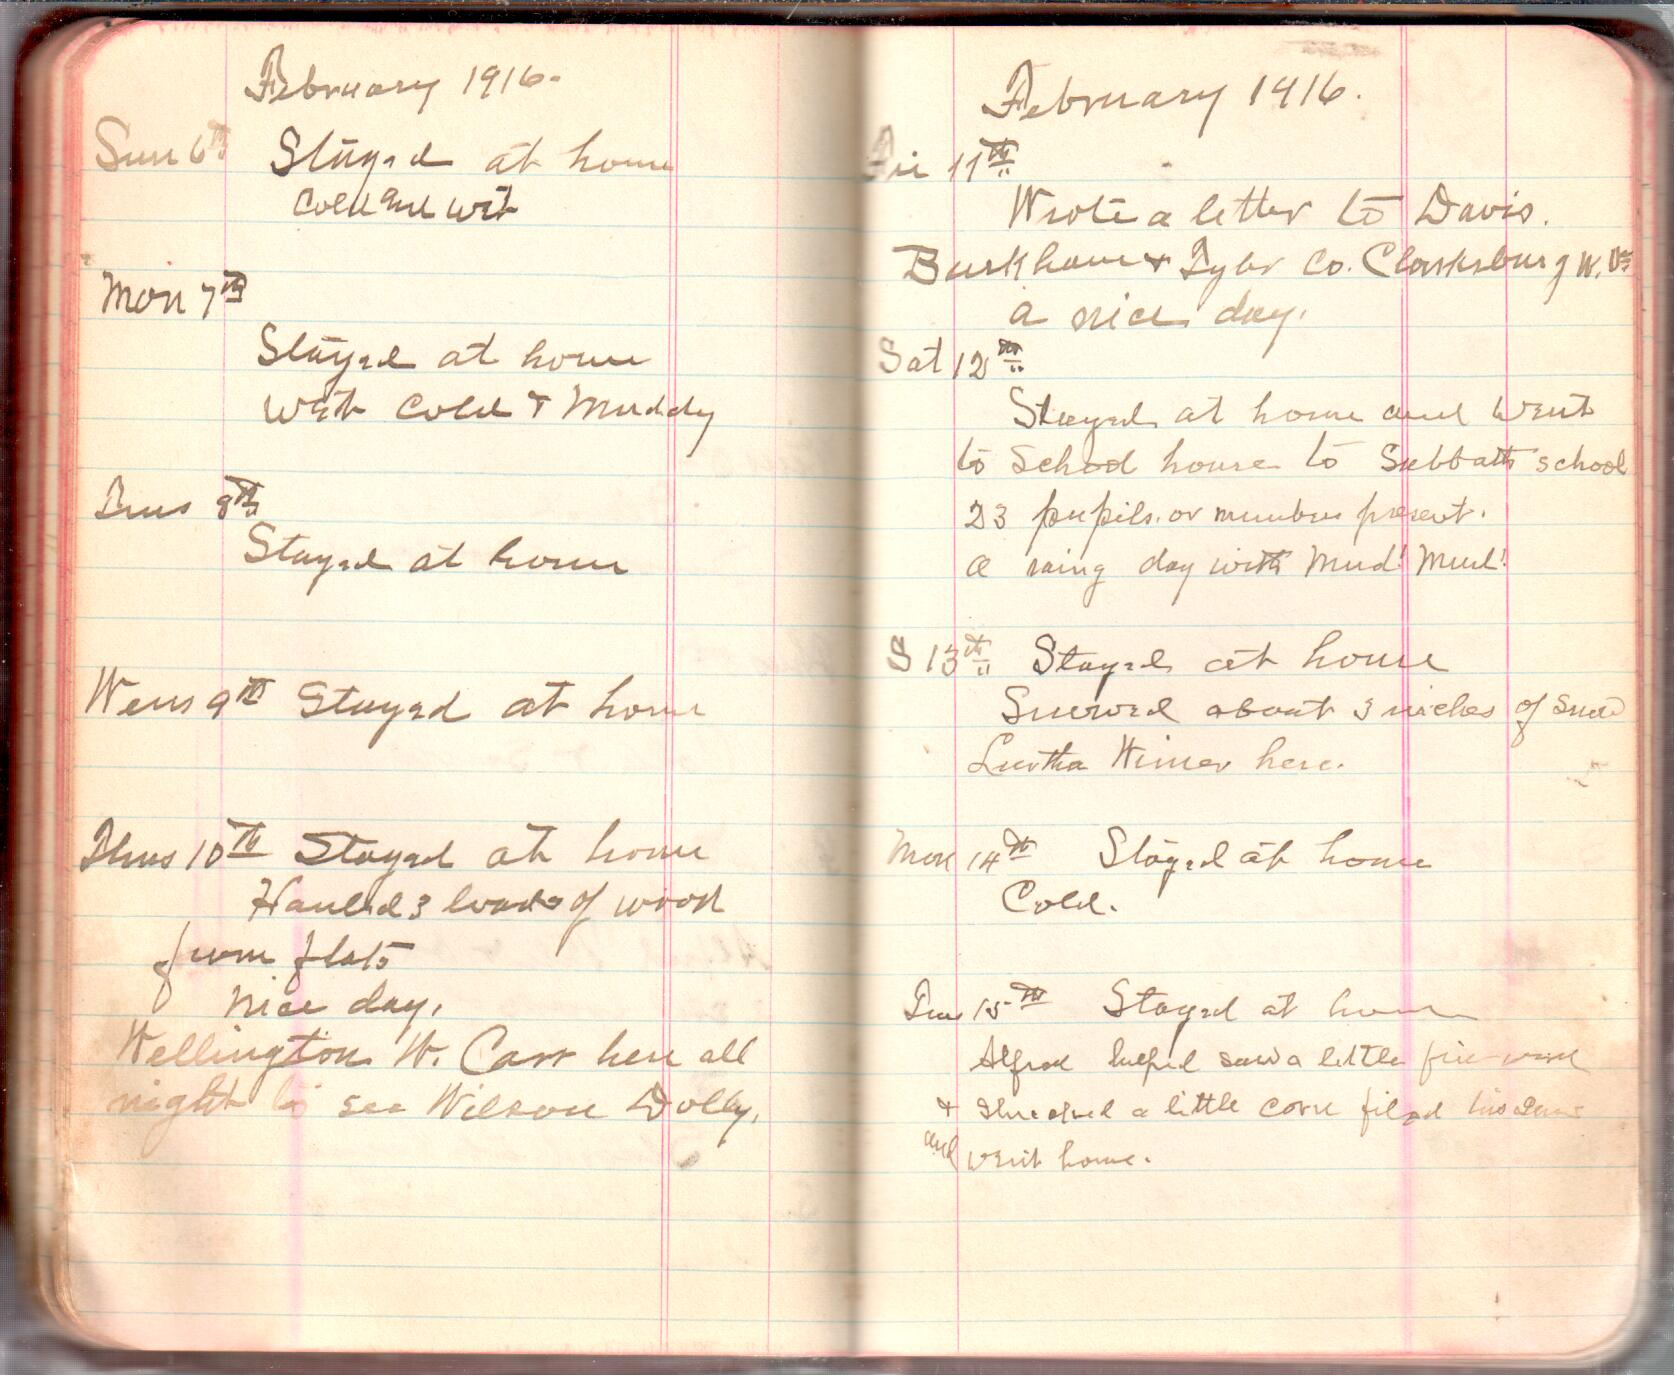 February 1916.
Sun 6th Stayed at home
Cold and wet
Mon 7th
Stayed at home
Wet Cold & Muddy
Tues 8th
Stayed at home
Wens 9th Stayed at home
Thus 10th Stayed at home
Hauled 3 loads of wood
from flats
Nice day.
Wellington W. Carr here all
night to see Wilson Dolly.
February 1916.
Fri 11th
Wrote a letter to Davis.
Burkham & Tyler Co. Clarksburg W. Va
a nice day.
Sat 12th
Stayed at home and went
to School house to Sabbath school
23 pupils. or members present.
a rainy day with Mud! Mud!
S 13th Stayed at home
Snowed about 3 inches of snow
Luvtha Wimer here.
Mon 14th Stayed at home
Cold.
Tue 15th Stayed at home
Alfred helped saw a little fire wood
& a little corn filed his saw
and went home.